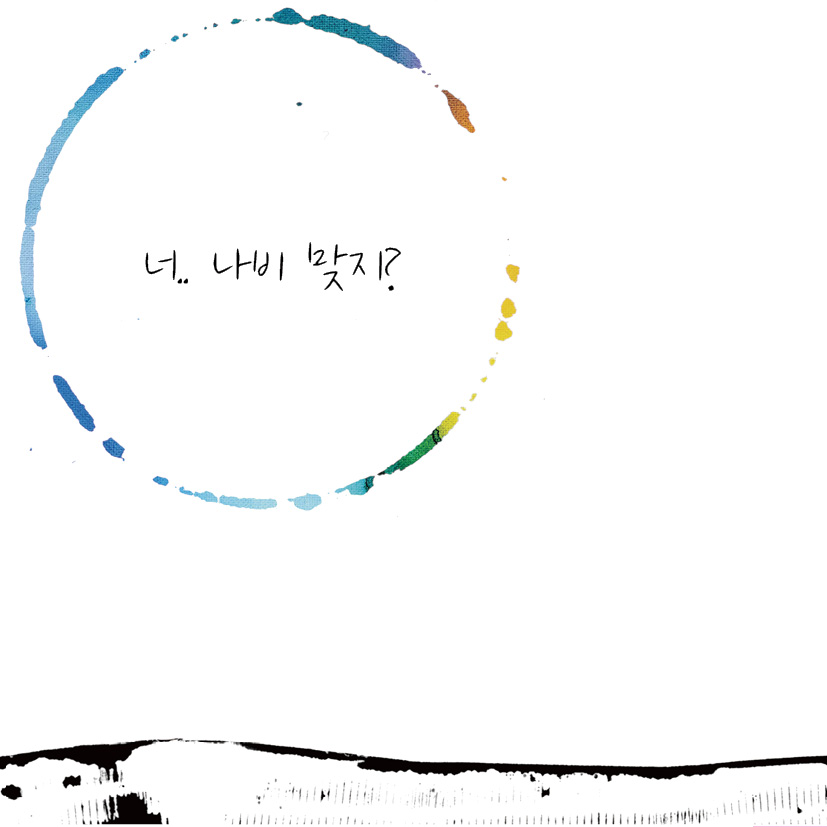 너.. 나비 맞지?